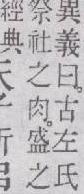 異義曰古左氏
祭社之肉盛之
經典